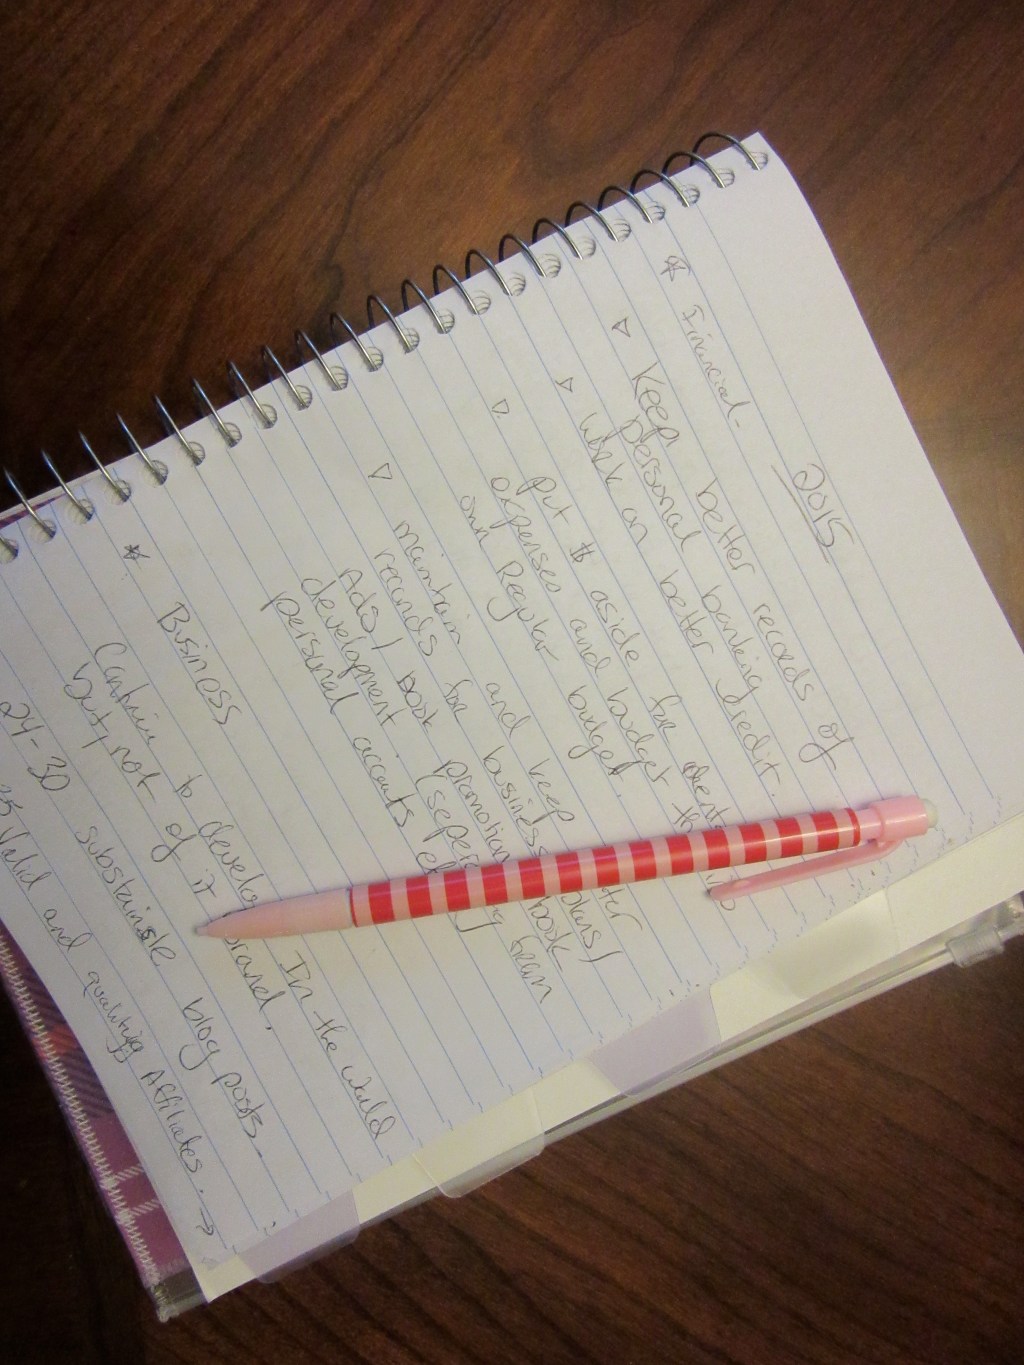 2015
* Financial -
▽ Keep better records of
personal banking
▽ Work on better credit.
▽ Put $ aside for
expenses and budget
own Regular budget.
▽ maintain and keep
records for business
Ads/ book promotion book
development. from
personal accounts
* Business
Continue to develop In the world
but, not of it brand.
24-30 substainable blog posts.
25 Valid and qualifing Affiliates. →